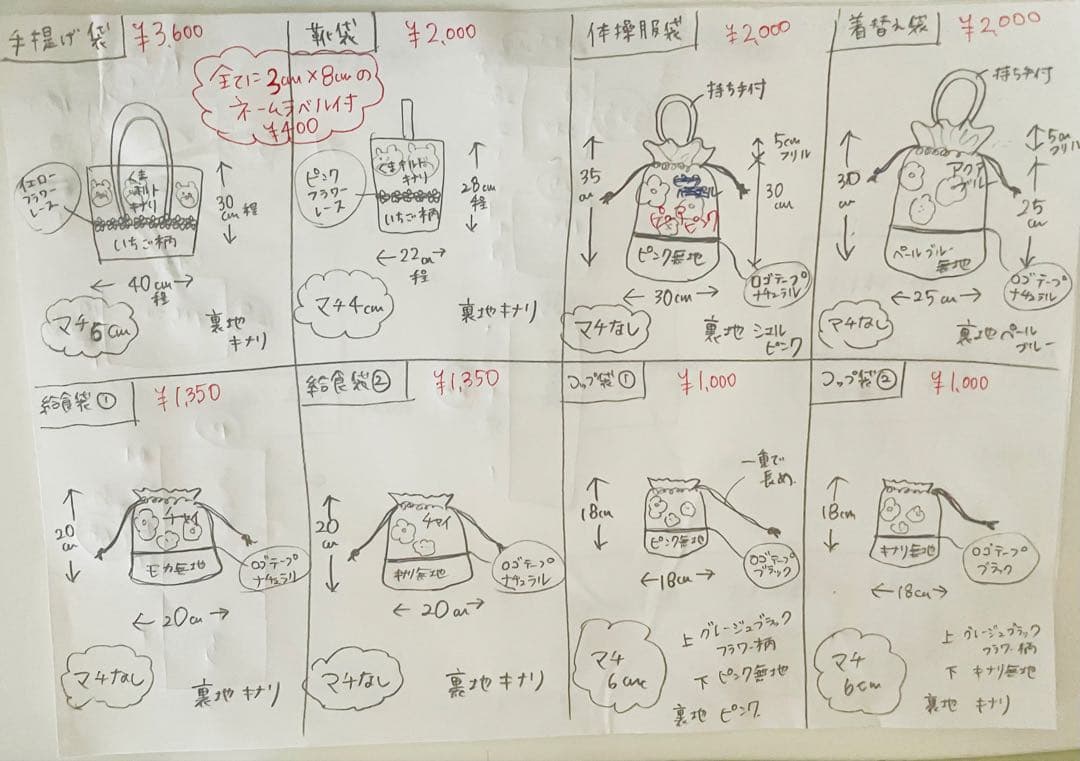 手提げ袋 ¥3,600
全てに3cm×8cmの
ネームラベル付
¥400
イエロー
フラワー
レース
くま
キルト
キナリ
いちご柄
30
cm程
40cm
程
マチ
6cm
裏地
キナリ
靴袋 ¥2,000
ピンク
フラワー
レース
くまキルト
キナリ
いちご柄
28cm
程
22cm
程
マチ4cm
裏地キナリ
体操服袋 ¥2,000
持ち手付
35
cm
5cm
フリル
30
cm
ピンク
ピンク無地
ロゴテープ
ナチュラル
30cm
マチなし
裏地 シェル
ピンク
着替え袋 ¥2,000
持ち手付
30
cm
5cm
フリル
アクア
ブルー
25
cm
ペールブルー
無地
ロゴテープ
ナチュラル
25cm
マチなし
裏地ペール
ブルー
給食袋① ¥1,350
20
cm
チャイ
モカ無地
ロゴテープ
ナチュラル
20cm
マチなし
裏地 キナリ
給食袋② ¥1,350
20
cm
チャイ
キナリ無地
ロゴテープ
ナチュラル
20cm
マチなし
裏地 キナリ
コップ袋① ¥1,000
一重で
長め
18cm
ピンク無地
ロゴテープ
ブラック
18cm
マチ
6cm
上 グレージュブラック
フラワー柄
下 ピンク無地
裏地 ピンク
コップ袋② ¥1,000
18cm
キナリ無地
ロゴテープ
ブラック
18cm
マチ
6cm
上 グレージュブラック
フラワー柄
下 キナリ無地
裏地 キナリ